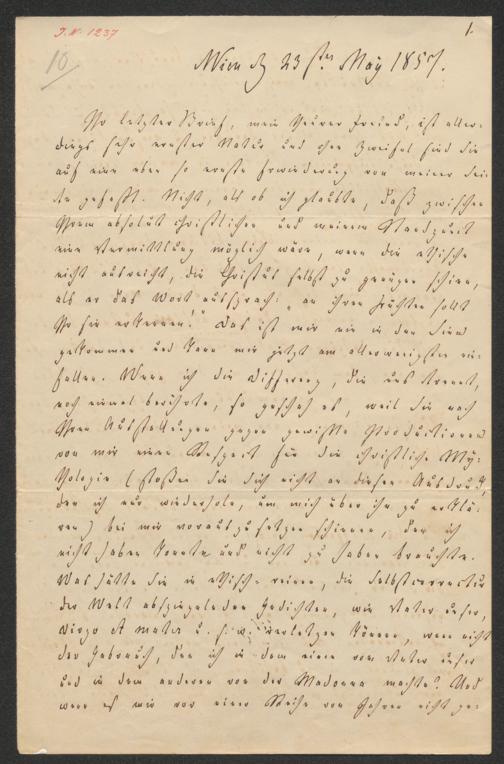 J.N. 1237
1.
10
Wien d 23sten May 1857.
Ihr letzter Brief, mein theurer Freund, ist aller-
dings sehr ernster Natur und ohne Zweifel sind Sie
auf eine eben so ernste Erwiederung von meiner Sei-
te gefaßt. Nicht, als ob ich glaubte, daß zwischen
Ihrem absolut christlichen und meinem Standpunct
eine Vermittlung möglich wäre, wenn die ethische
nicht ausreicht, die Christus selbst zu genügen schien,
als er das Wort aussprach: „an ihren Früchten sollt
Ihr sie erkennen!" Das ist mir nie in den Sinn
gekommen und kann mir jetzt am allerwenigsten ein-
fallen. Wenn ich die Differenz, die uns trennt,
noch einmal berührte, so geschah es, weil Sie nach
Ihren Ausstellungen gegen gewisse Productionen
von mir einen Respect für die christliche My-
thologie (stoßen Sie sich nicht an diesen Ausdruck,
den ich nur wiederhole, um mich über ihn zu erklä-
ren) bei mir vorauszusetzen schienen, den ich
nicht haben konnte und nicht zu haben brauchte.
Was hätte Sie in ethisch reinen, die Selbstcorrectur
der Welt abspiegelnden Gedichten, wie Vater unser,
Virgo et mater u. s. w. verletzen können, wenn nicht
der Gebrauch, den ich in dem einen vom Vater unser
und in dem anderen von der Madonna machte? Und
wenn es mir vor einer Reihe von Jahren nicht ge-